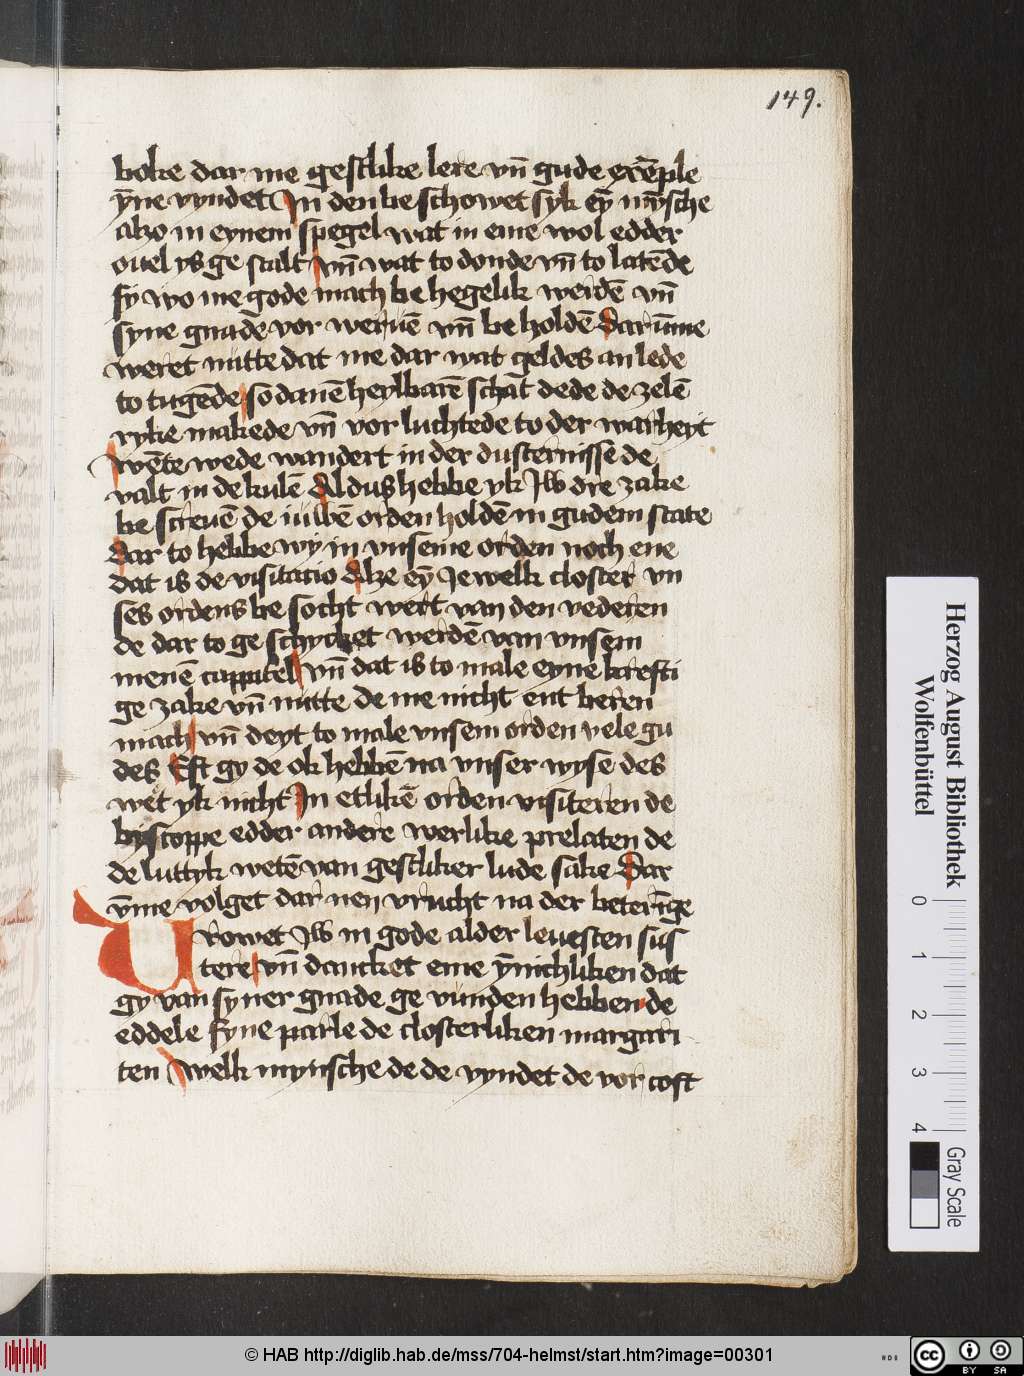 149.
boke dar me gestlike lere vn̄ gude exēple
ȳne vyndet In den be schowet syk eȳ mȳsche
alzo in eynem spegel wat in eme wol edder
ouel ys ge stalt vn̄ wat to donde vn̄ to latēde
sy wo me gode mach be hegelik werdē vn̄
syne gnade vor weruē vn̄ be holdē Dar ūme
weret nutte dat me dar wat geldes an lede
to tugēde so danē heylbarē schat dede de zelē
ryke makede vn̄ vor luchtede to der warheyt
wēte wede wandert in der dusternisse de
valt in de kulē Aldus hebbe yk Jw dre zake
be screuē de iuwē orden holdē in gudem state
Dar to hebbe wy in vnseme orden noch ene
dat is de visitatio Alze eȳ Jewelk closter vn
ses ordens be socht wert van den vederen
de dar to ge schycket werdē van vnsem
menē cappittel vn̄ dat is to male eyne krefti
ge zake vn̄ nutte de me nicht ent beren
mach vn̄ deyt to male vnsem orden vele gu
des Eft gy de ok hebbē na vnser wyse des
wet yk nicht In etlikē orden visiteren de
byscoppe edder andere werlike prelaten de
de luttyk wetē van gestliker lude sake Dar
v̄me volget dar nen vrucht na der beterīge
Vrowet Jw in gode alder leuesten sus
tere vn̄ dancket eme ȳnichliken dat
gy van syner gnade ge vunden hebben de
eddele fyne parle de closterliken margari
ten welk mynsche de de vyndet de vor coft
Herzog August Bibliothek
Wolfenbüttel
0 1 2 3 4
Gray Scale
© HAB http://diglib.hab.de/mss/704-helmst/start.htm?image=00301
HAB
cc BY SA